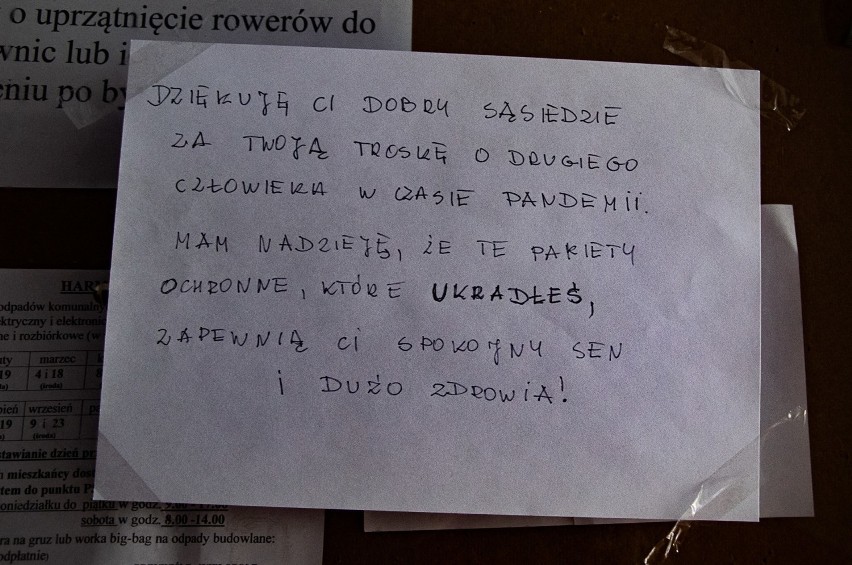 o uprzątnięcie rowerów do
lub
po
DZIĘKUJĘ CI DOBRY SĄSIEDZIE
ZA TWOJĄ TROSKĘ O DRUGIEGO
CZŁOWIEKA W CZASIE PANDEMII.
MAM NADZIEJĘ, ŻE TE PAKIETY
OCHRONNE, KTÓRE UKRADŁEŚ,
ZAPEWNIĄ CI SPOKOJNY SEN
I DUŻO ZDROWIA!
HAR
odpadów komunalny
ktryczny i elektronic
ne i rozbiórkowe (w
marzec
19 4 i 18
(środa)
wrzesień
19 9 i 23
(środa)
stawianie dzień pr
mieszkańcy dost
tem do punktu
oniedziałku do piątku w godz. 9.00
sobota w godz. 8.00 -14.00
ra na gruz lub worka big-bag na odpady budowlane:
odpłatnie)